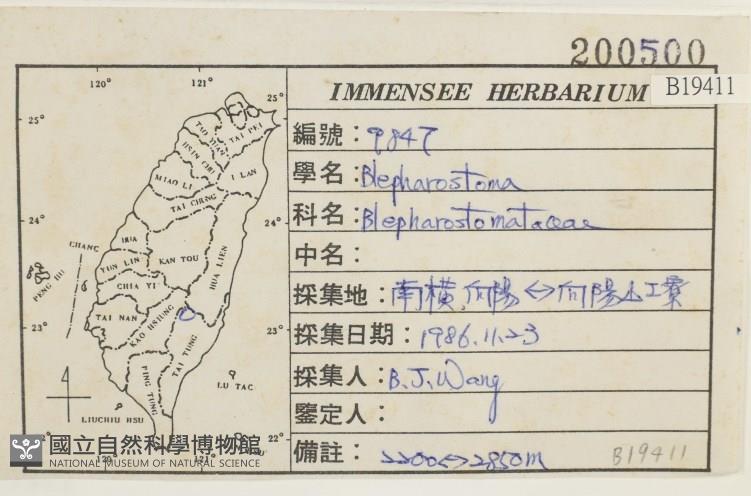 200500
IMMENSEE HERBARIUM
B19411
編號：9847
學名：Blepharostoma
科名：Blepharostomataceae
中名：
採集地：南橫，向陽↔向陽山工寮
採集日期：1986.11.23
採集人：B.J.Wang
鑒定人：
備註：2200↔2850m
B19411
120°
121°
25°
25°
TAI PEI
HSIN CHU
I LAN
MIAO LI
TAI CHUNG
24°
24°
CHANG
HUA
YUN LIN
KAN TOU
HUA LIEN
PENG HU
CHIA YI
TAI NAN
KAO HSIUNG
23°
23°
PING TUNG
TAI TUNG
LU TAC
LIUCHIU HSU
22°
國立自然科學博物館
NATIONAL MUSEUM OF NATURAL SCIENCE